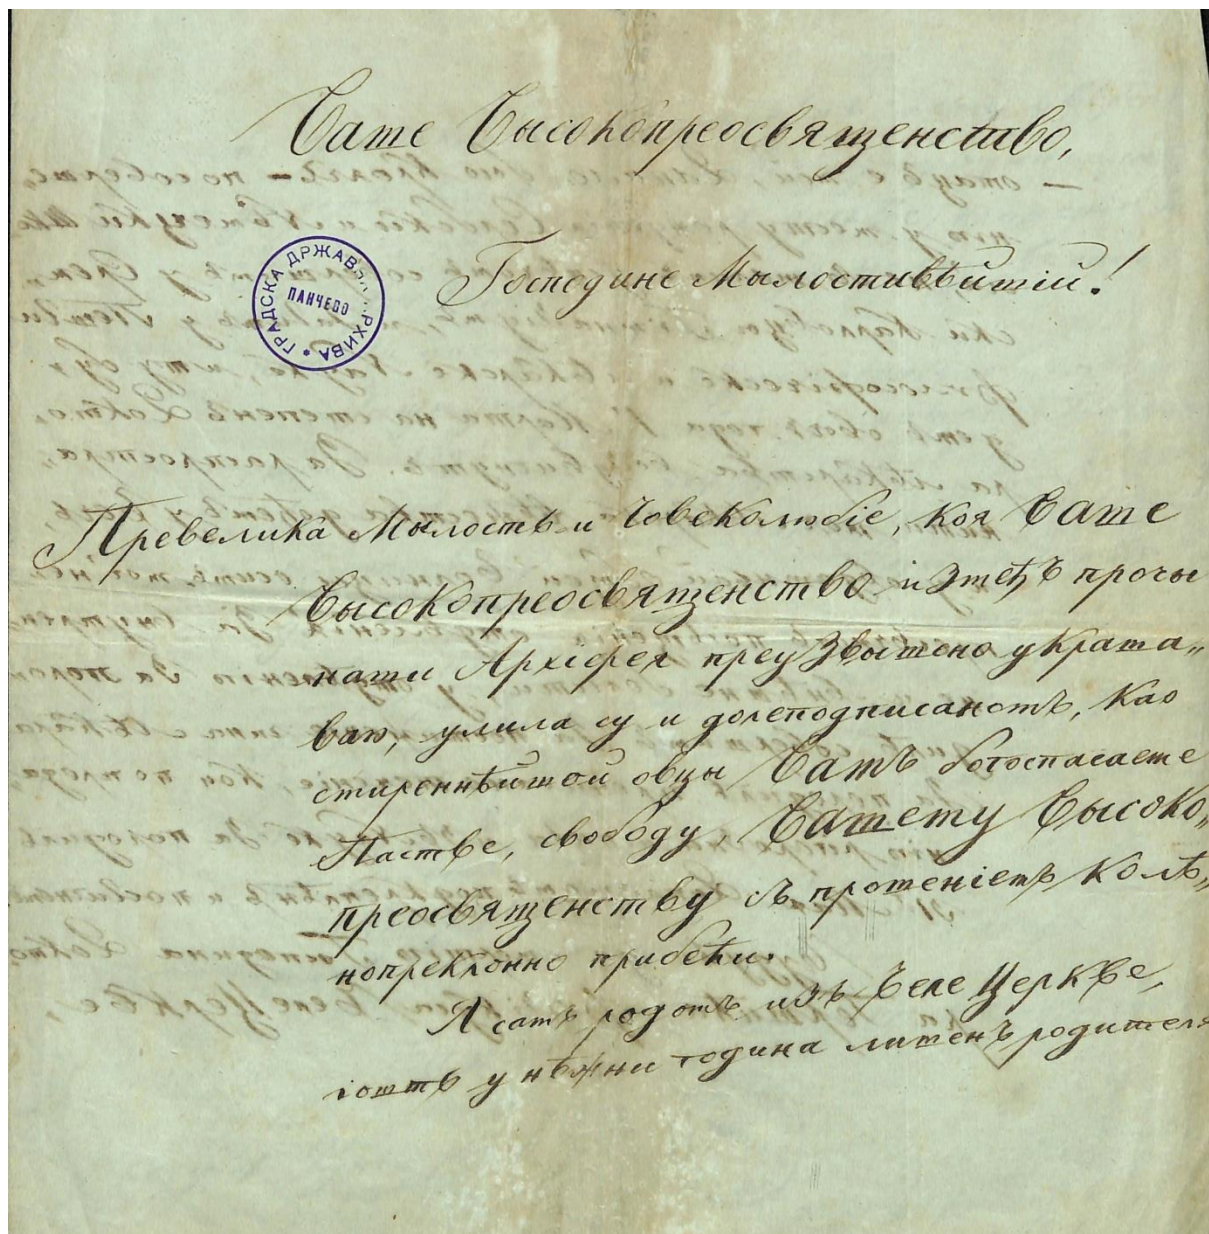 Ваше Высокопреосвященство,
ГРАДСКА ДРЖАВНА АРХИВА
ПАНЧЕВО
Господине Мылостивѣйшій!
Превелика Мылость и Човеколюбіе, коя Ваше
Высокопреосвященство измеђъ прочы
наши Архіерея преузвышено украша„
ваю, улила су и долеподписаномъ, као
смиреннѣйшой овцы Вашъ богоспасаеме
Пастве, свободу, Вашему Высоко„
преосвященству съ прошеніемъ колѣ„
нопреклонно прибећи.
Я самъ родомъ изъ Беле Церкве,
іоштъ у нѣжни година лишенъ родителя